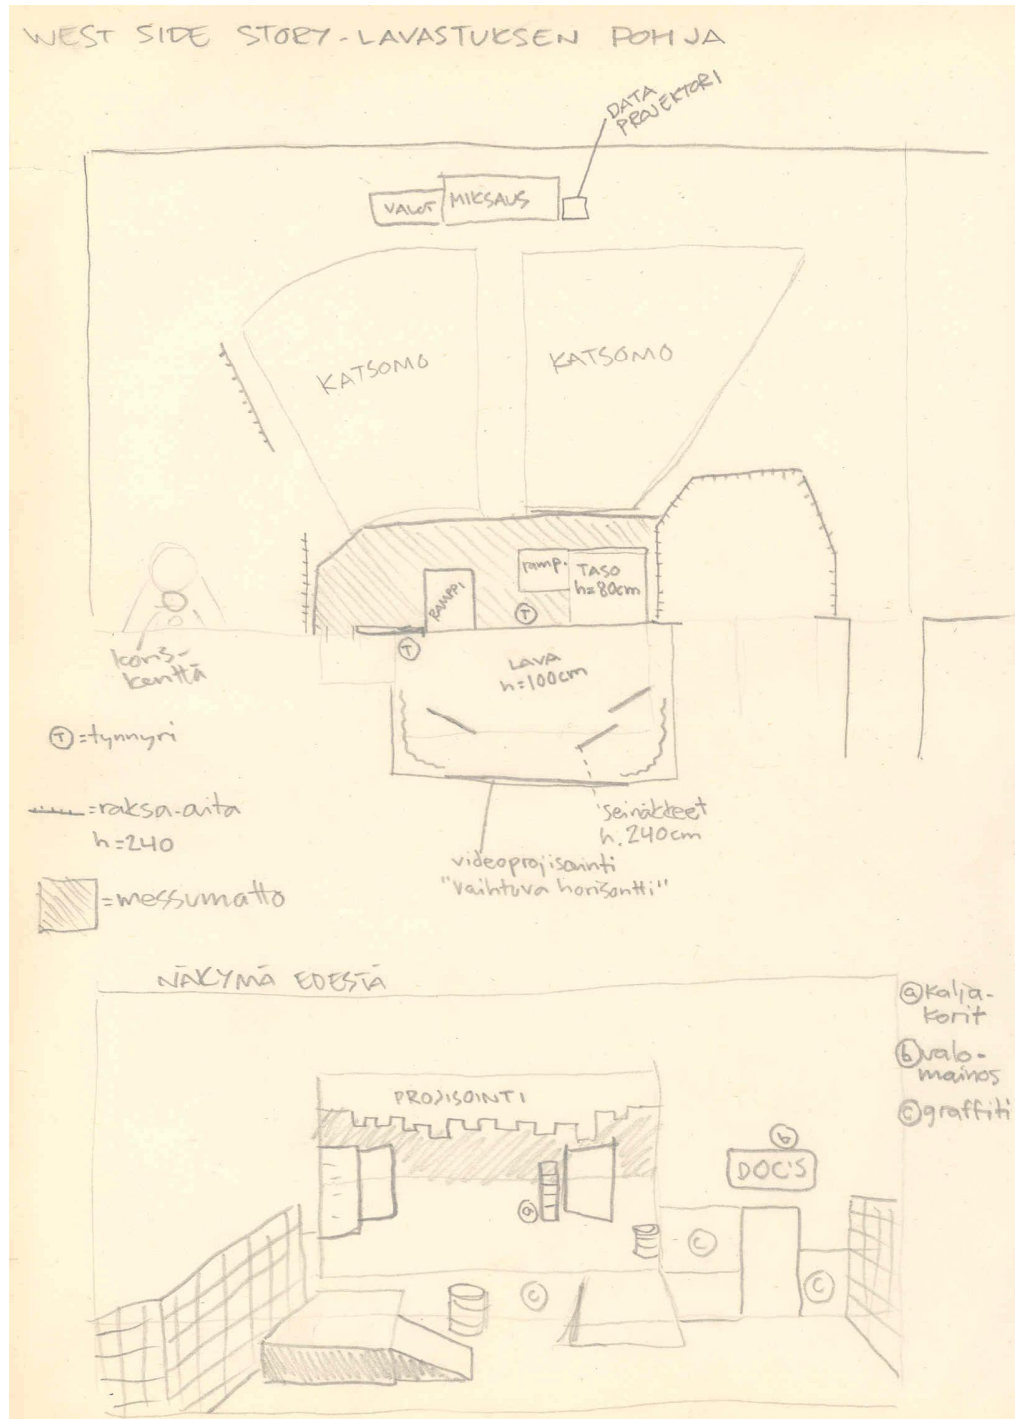 WEST SIDE STORY - LAVASTUKSEN POHJA
DATA
PROJEKTORI
VALOT
MIKSAUS
KATSOMO
KATSOMO
RAMPPI
ramp.
TASO
h=80cm
T
T
LAVA
h=100cm
koris-
kenttä
T = tynnyri
= raksa-aita
h=240
= messumatto
seinäkkeet
h. 240cm
videoprojisointi
"vaihtuva horisontti"
NÄKYMÄ EDESTÄ
a kalja-
korit
b valo-
mainos
c graffiti
PROJISOINTI
b
DOC'S
a
c
c
c